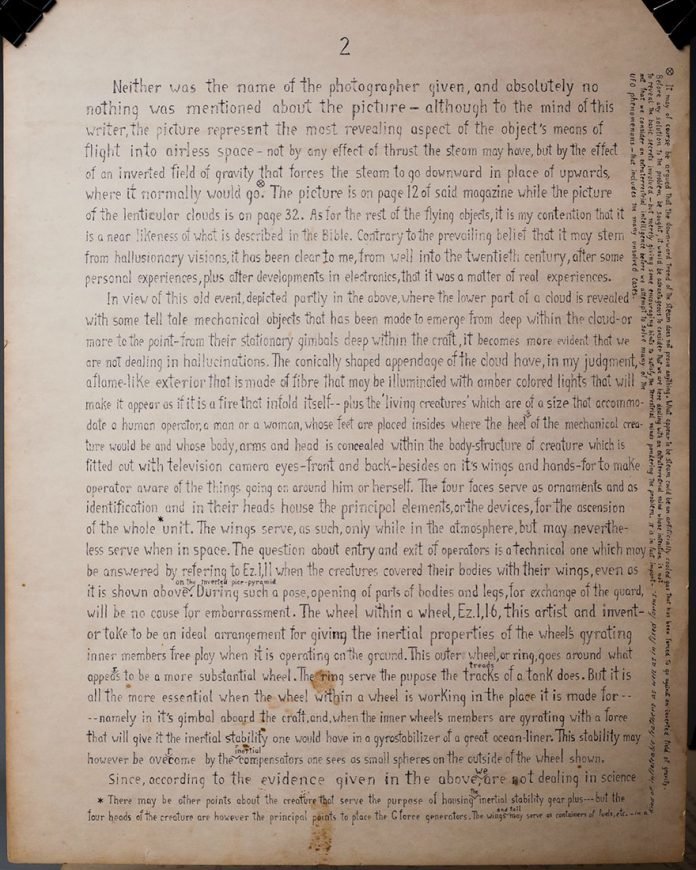 2
Neither was the name of the photographer given, and absolutely no
nothing was mentioned about the picture – although to the mind of this
writer, the picture represent the most revealing aspect of the object's means of
flight into airless space – not by any effect of thrust the steam may have, but by the effect
of an inverted field of gravity that forces the steam to go downward in place of upwards,
where it normally would go.⊗ The picture is on page 12 of said magazine while the picture
of the lenticular clouds is on page 32. As for the rest of the flying objects, it is my contention that it
is a near likeness of what is described in the Bible. Contrary to the prevailing belief that it may stem
from hallusionary visions, it has been clear to me, from well into the twentieth century, after some
personal experiences, plus after developments in electronics, that it was a matter of real experiences.
In view of this old event, depicted partly in the above, where the lower part of a cloud is revealed
with some tell tale mechanical objects that has been made to emerge from deep within the cloud–or
more to the point–from their stationary gimbals deep within the craft, it becomes more evident that we
are not dealing in hallucinations. The conically shaped appendage of the cloud have, in my judgment,
a flame-like exterior that is made of fibre that may be illuminated with amber colored lights that will
make it appear as if it is a fire that infold itself-- plus the 'living creatures' which are of a size that accommo-
date a human operator, a man or a woman, whose feet are placed insides where the heels of the mechanical crea-
ture would be and whose body, arms and head is concealed within the body-structure of creature which is
fitted out with television camera eyes–front and back–besides on it's wings and hands–for to make
operator aware of the things going on around him or herself. The four faces serve as ornaments and as
identification and in their heads house the principal elements, or the devices, for the ascension
of the whole * unit. The wings serve, as such, only while in the atmosphere, but may neverthe-
less serve when in space. The question about entry and exit of operators is a technical one which may
be answered by refering to Ez.1,11 when the creatures covered their bodies with their wings, even as
it is shown above on the inverted pier-pyramid. During such a pose, opening of parts of bodies and legs, for exchange of the guard,
will be no cause for embarrassment. The wheel within a wheel, Ez.1,16, this artist and invent-
or take to be an ideal arrangement for giving the inertial properties of the wheel's gyrating
inner members free play when it is operating on the ground. This outer wheel, or ring, goes around what
appears to be a more substantial wheel. The ring serve the pupose the treads tracks of a tank does. But it is
all the more essential when the wheel within a wheel is working in the place it is made for --
--namely in it's gimbal aboard the craft, and, when the inner wheel's members are gyrating with a force
that will give it the inertial stability one would have in a gyrostabilizer of a great ocean-liner. This stability may
however be overcome by the inertial compensators one sees as small spheres on the outside of the wheel shown.
Since, according to the evidence given in the above, we are not dealing in science
* There may be other points about the creature that serve the purpose of housing the inertial stability gear plus---but the
four heads of the creature are however the principal points to place the G force generators. The wings and tail may serve as containers of fuels, etc.
⊗ It may of course be argued that the downward thrust of the steam does not prove anything. What appear to be steam could be an artificially cooled gas that has been forced to go against an inverted field of gravity.
Before any solution to the problem, be sought, it would be advantageous to consider that we are here dealing with an extraterrestrial mind whose intention is not
to reveal the basic secrets involved – but merely giving some encouraging hints to satisfy the terrestrial minds pondering the problem. It is in fact import-
ant that we consider an extraterrestrial intelligence before we attempt to solve many of the
UFO phenomenons – that includes the many unsolved cases.